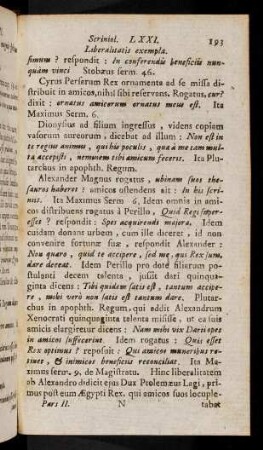 Scriniol. LXXI. 193
Liberalitatis exempla.
simum ? respondit : In conferendis beneficiis nun-
quam vinci Stobæus serm. 46.
Cyrus Persarum Rex ornamenta ad se missa di-
stribuit in amicos, nihil sibi reservans. Rogatus, cur?
dixit : ornatus amicorum ornatus meus est. Ita
Maximus Serm. 6.
Dionysius ad filium ingressus, videns copiam
vasorum aureorum, dicebat ad illum : Non est in
te regius animus, qui his poculis, quæ à me tam mul-
ta accepisti, neminem tibi amicum feceris. Ita Plu-
tarchus in apophth. Regum.
Alexander Magnus rogatus, ubinam suos the-
sauros haberet ? amicos ostendens ait : In his scri-
niis. Ita Maximus Serm 6. Idem omnia in ami-
cos distribuens rogatus à Perillo, Quid Regi super-
esset ? respondit : Spes acquirendi majora. Idem
cuidam donans urbem, cum ille diceret, id non
convenire fortunæ suæ, respondit Alexander :
Non quæro, quid te accipere, sed me, qui Rex sum,
dare deceat. Idem Perillo pro dote filiarum po-
stulanti decem talenta, jussit dari quinqua-
ginta dicens : Tibi quidem satis est, tantum accipe-
re, mihi verò non satis est tantum dare. Plutar-
chus in apophth. Regum, qui addit Alexandrum
Xenocrati quinquaginta talenta misisse, ut ea suis
amicis elargiretur dicens : Nam mihi vix Darii opes
in amicos suffecerint. Idem rogatus : Quis esset
Rex optimus ? reposuit : Qui amicos muneribus re-
tinet, & inimicos beneficiis reconciliat. Ita Ma-
ximus serm. 9. de Magistratu. Hinc liberalitatem
ab Alexandro didicit ejus Dux Ptolemæus Lagi, pri-
mus post eum Ægypti Rex. qui amicos suos locuple-
Pars II. N tabat